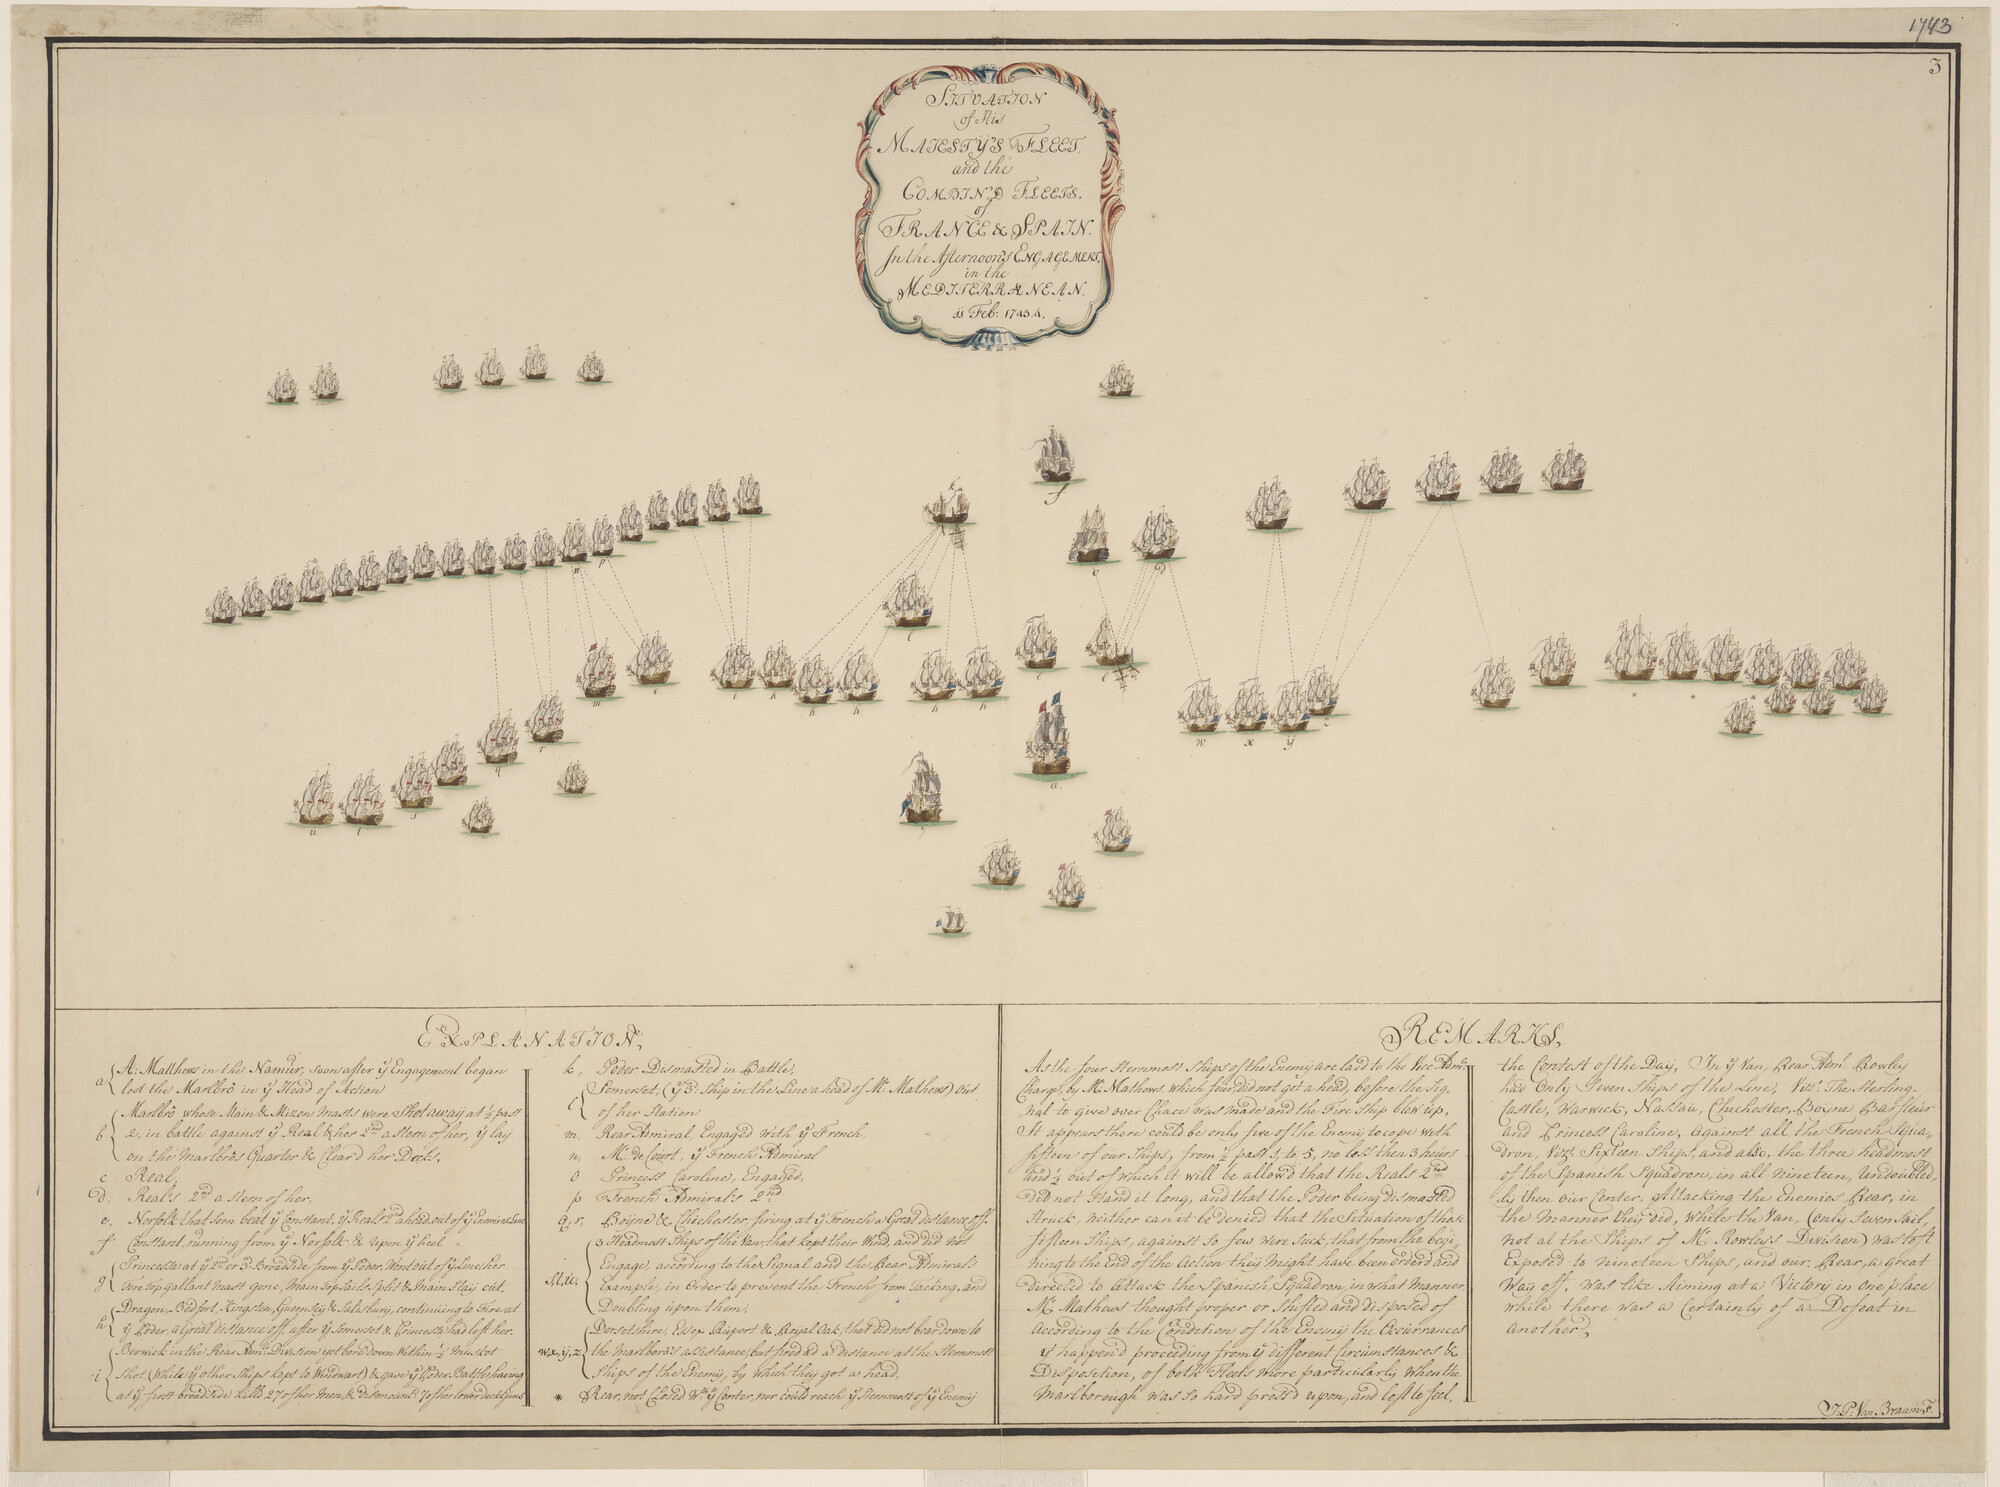 1743
3
SITUATION
of His
MAJESTY'S FLEET,
and the
COMBIN'D FLEETS,
of
FRANCE & SPAIN.
In the Afternoon's ENGAGEMENT,
in the
MEDITERRANEAN.
11 Feb: 1743.4.
k
f
c
d
n
p
l
m
o
i
h
h
h
h
h
e
w
x
y
z
q
r
s
t
u
a
EXPLANATION,
a { A: Matthews in the Namur, soon after ye Engagement began
left the Marlbrô in ye Head of Action
b { Marlbrô whose Main & Mizen Masts were shot away at ½ past
2, in battle against ye Real & her 2nd a stern of her, ye lay
on the Marlbrôs Quarter & Clear'd her Decks,
c Real,
d. Real's 2nd a stern of her.
e. Norfolk that soon beat ye Constant, ye Real's 2nd ahead, out of ye Enemies Line
f Constant, running from ye Norfolk & upon ye heel
g { Princessa at ye 2d or 3d Broadside from ye Poder Went out of ye Line, her
Fore Top gallant Mast gone, Main Top Sail Split & Main Stay cut.
h { Dragon, Bedford, Kingston, Guernsey & Salisbury, continuing to Fire at
ye Poder, a great distance off, after ye Somerset & Princessa had left her.
i { Berwick in the Rear Adml's Division yet bore down Within ½ Musket
Shot (While ye other Ships kept to Windward) & gave ye Poder Battle, having
at ye first broad side kill'd 27 of her Men, & dismount'd 7 of the lower deck guns
k, Poder Dismasted in Battle,
l { Somerset, (ye 3d Ship in the Line a head of Mr Mathews) Out
of her Station
m, Rear Admiral, Engaged with ye French,
n, Mr de Court, ye French Admiral
o Princess Caroline, Engaged,
p French Admiral's 2nd.
q, r. Boyne & Chichester, firing at ye French a Great distance off.
s,t,u, { 3 Headmost Ships of the Van, that kept their Wind, and did not
Engage, according to the Signal and the Rear Admiral's
Example, in Order to prevent the French from Tacking, and
Doubling upon them,
w,x,y,z { Dorsetshire, Essex, Ruport & Royal Oak, that did not bear down to
the Marlborô's assistance, but fired at a distance at the Sternmost
Ships of the Enemy, by which they got a head,
* Rear, not Closed Wth ye Center, nor could reach ye Sternmost of ye Enemy
REMARKS,
As the four Sternmost Ships of the Enemy are laid to the Vice Adm:
Charge, by Mr Mathews, which four, did not get a head, before the Sig,
nal to give over Chace was made and the Fire Ship blew up,
It appears there could be only five of the Enemy to cope with
fifteen of our Ships, from ½ past 1, to 5, no less then 3 hours
and ½ out of which it will be allow'd that the Reals 2nd
did not stand it long, and that the Poder being dismasted
Struck, neither can it be denied that the Situation of those
fifteen Ships, against so few were such, that from the begi,
ning to the End of the Action they might have been order'd and
directed to attack the Spanish Squadron, in what Manner
Mr Mathews thought proper or Shifted and disposed of
according to the Condition of the Enemy the Occurrances
yt happen'd proceeding from ye different Circumstances &
Disposition, of both Fleets more particularly When the
Marlborough was so hard press'd upon, and left to feel,
the Contest of the Day, In ye Van, Rear Adml. Rowley
had Only Seven Ships of the Line, Vizt. The Sterling-
Castle, Warwick, Nassau, Chichester, Boyne Barfleur
and Princess Caroline, against all the French Squa,
dron, Vizt Sixteen Ships, and also, the three headmost
of the Spanish Squadron, in all nineteen, Undoubted,
ly then our Center, Attacking the Enemies Rear, in
the Manner they did, while the Van, (only Seven Sail,
not all the Ships of Mr Rowleys Division) was left
Exposed to nineteen Ships, and our Rear, a great
Way off, Was like Aiming at a Victory in one place
while there was a Certainty of a Defeat in
another,
J. P: Van Braam F.